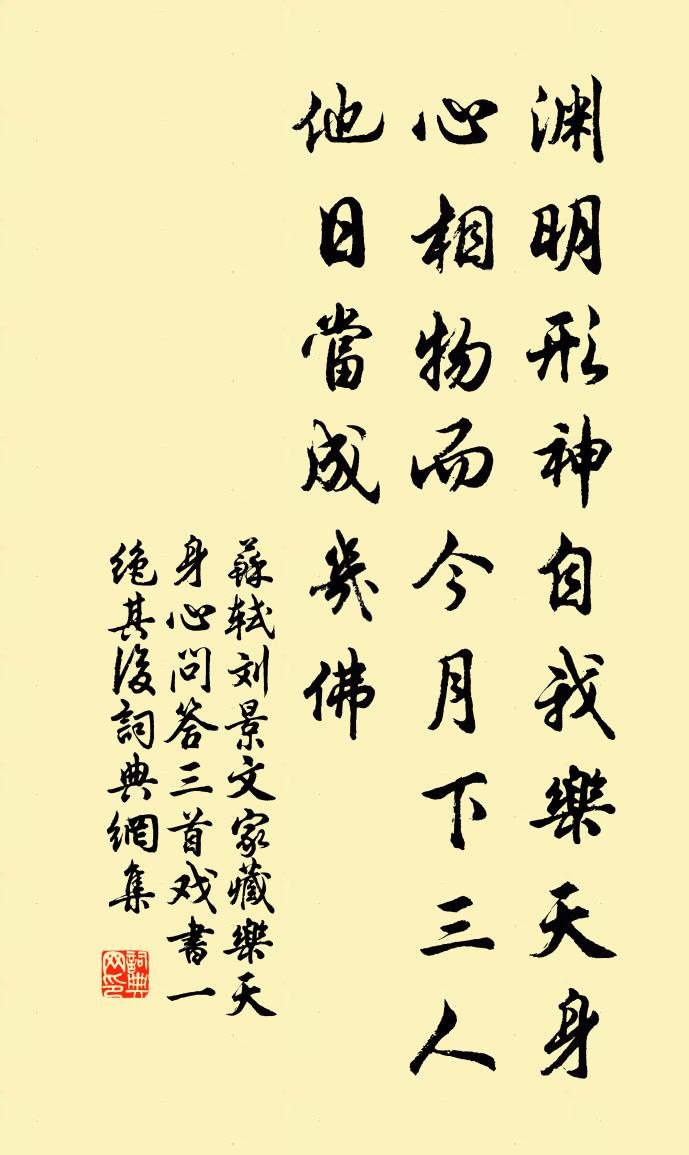 渊明形神自我樂天身
心相物而今月下三人
他日當成幾佛
蘇軾刘景文家藏樂天
身心问答三首戏書一
绝其後詞典網集
詞典网印